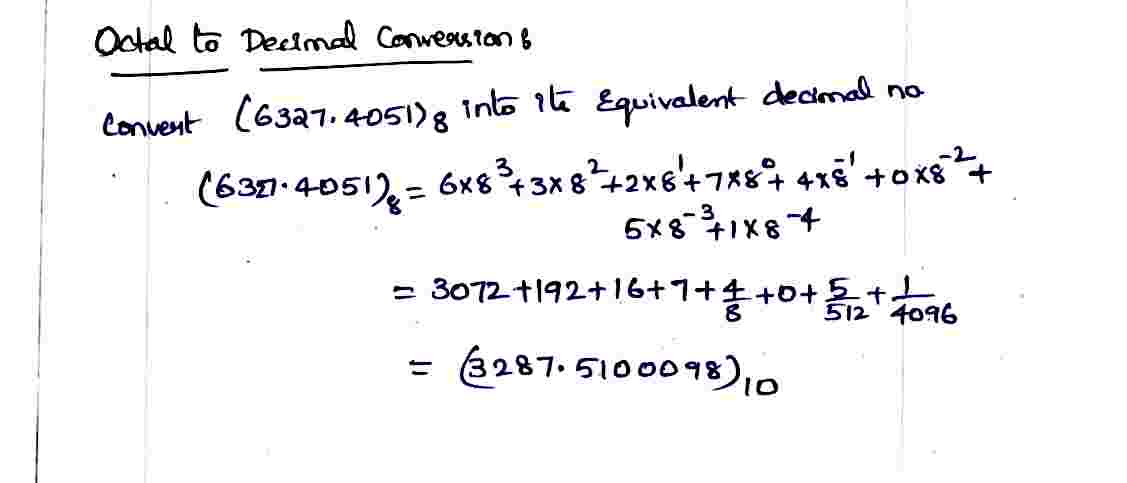 Octal to Decimal Conversions
Convert (6327.4051)₈ into its Equivalent decimal no
(6327.4051)₈ = 6×8³+3×8²+2×8¹+7×8⁰+4×8⁻¹+0×8⁻²+
5×8⁻³+1×8⁻⁴
= 3072+192+16+7+4/8+0+5/512+1/4096
= (3287.5100098)₁₀